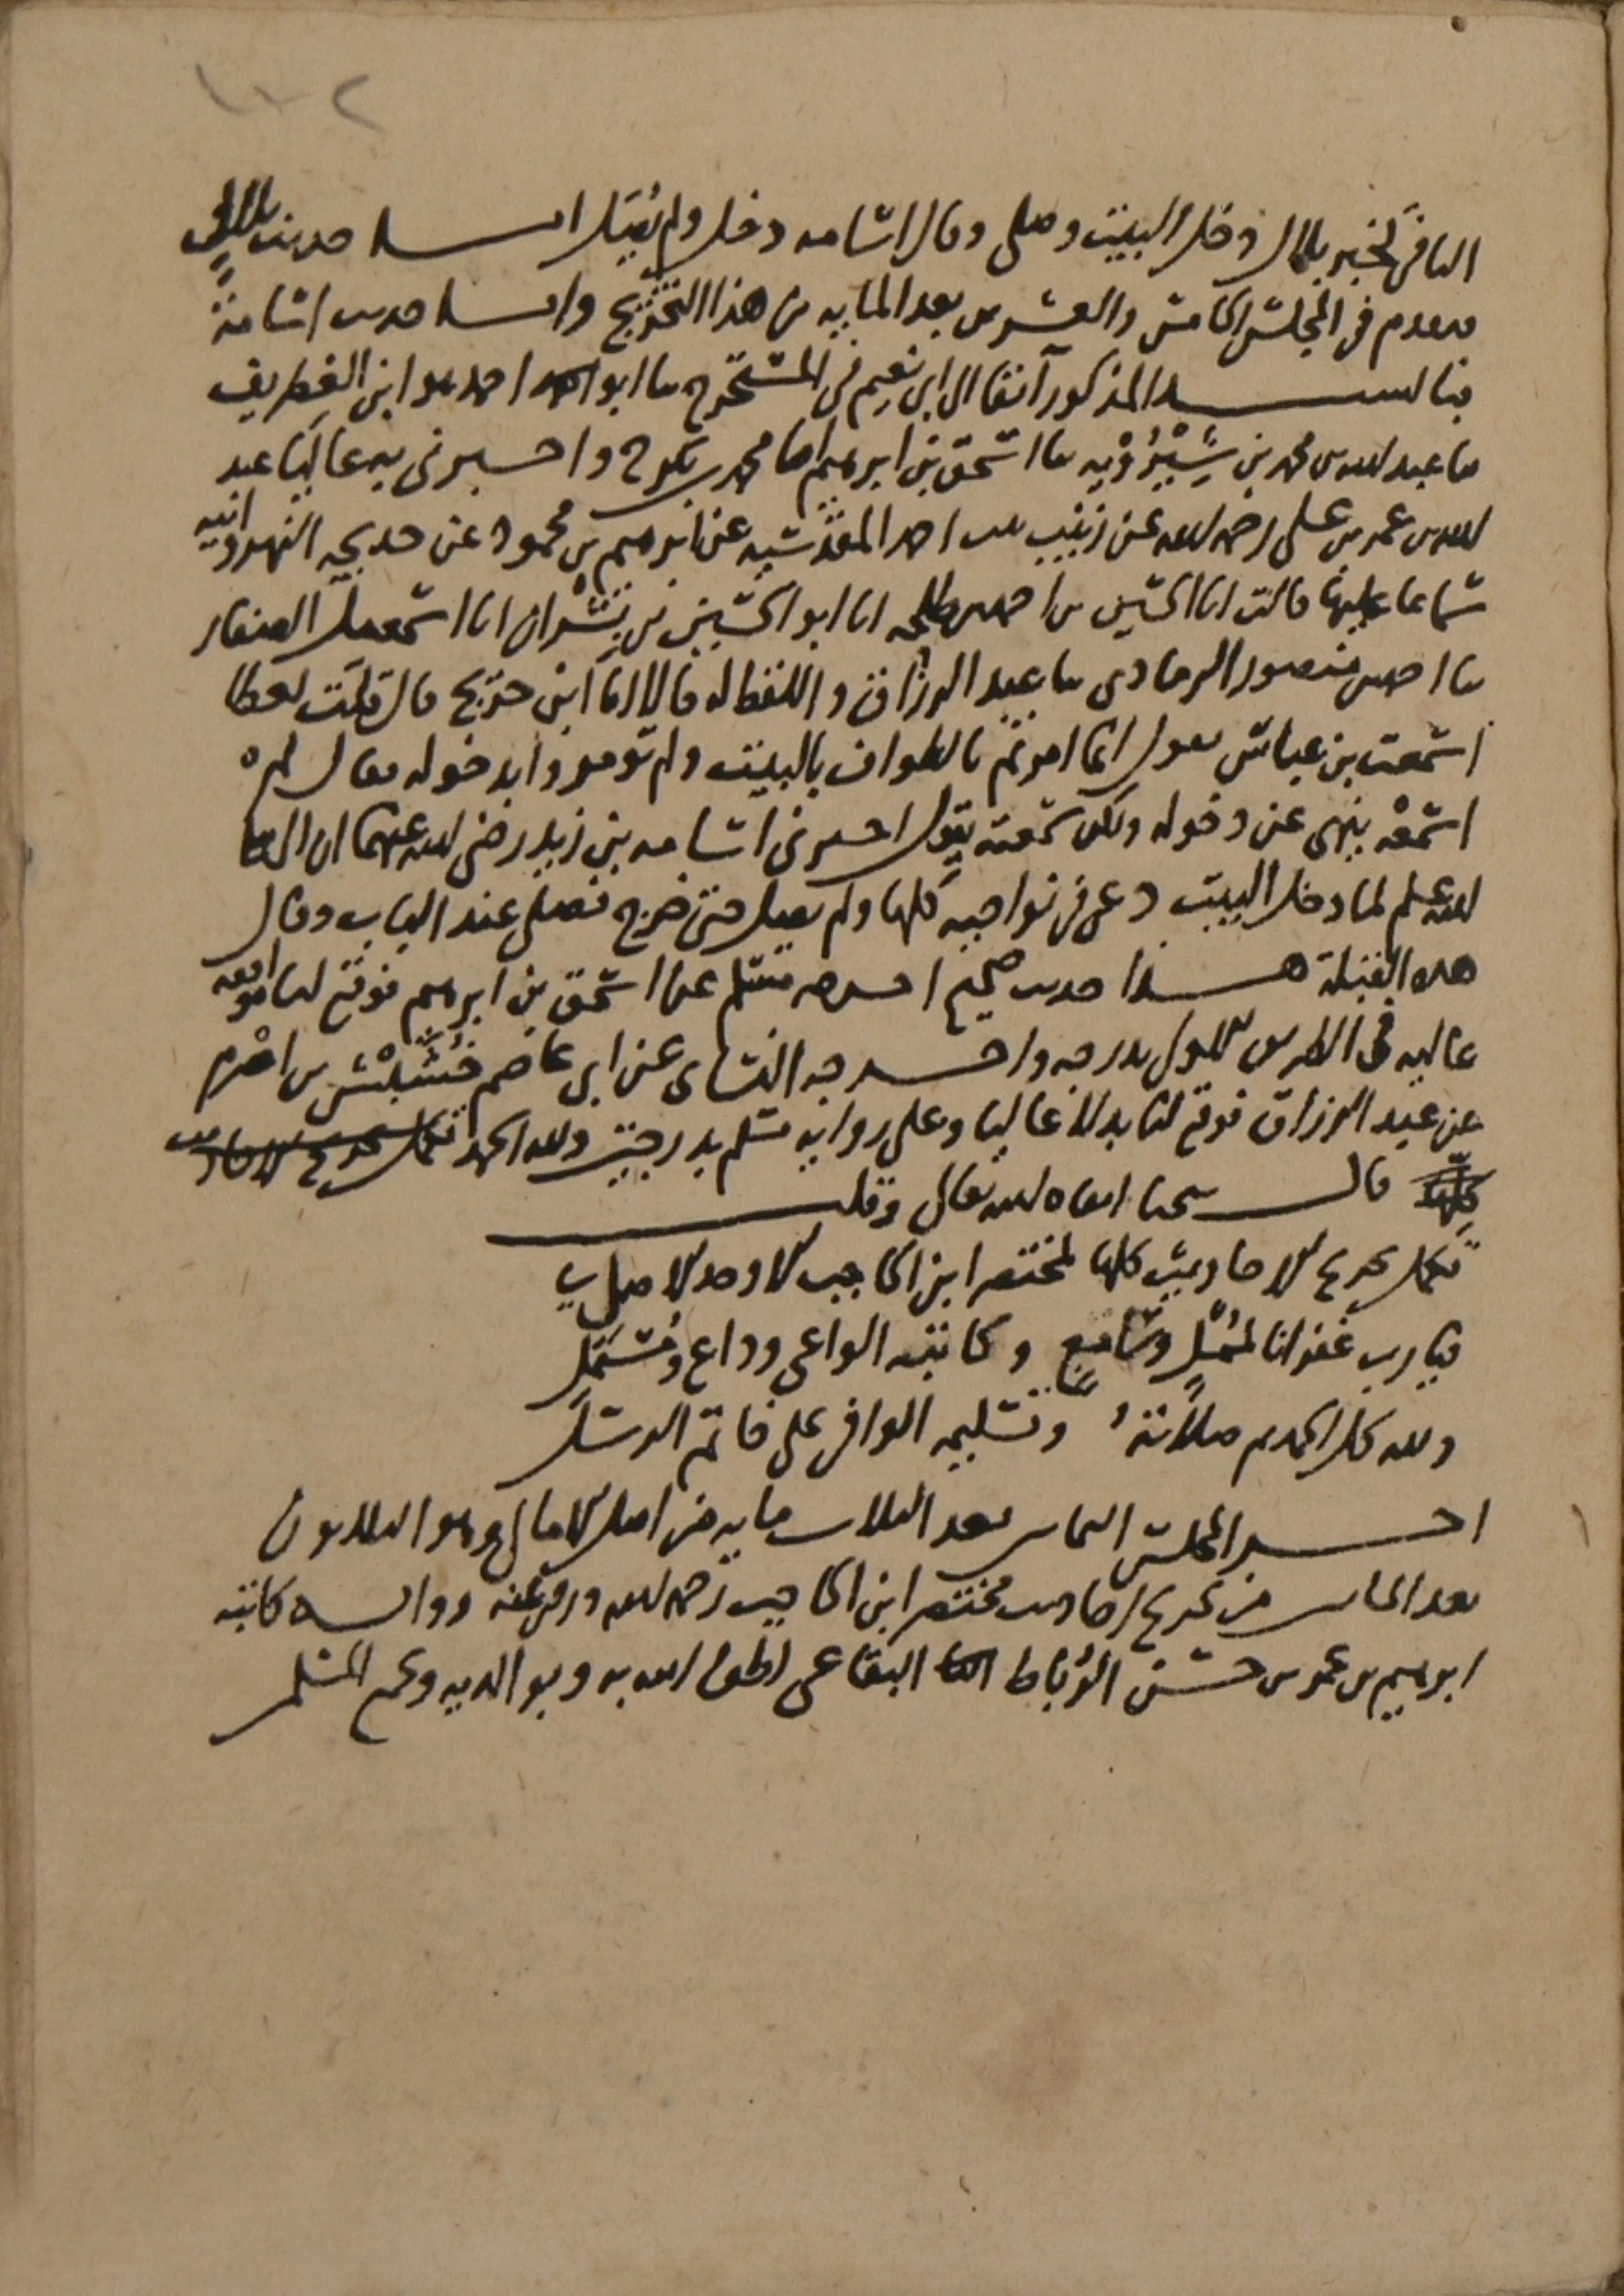 ١٠٢
النافي كخبر بلال دخل البيت وصلى وقال اسامه دخل ولم يصل اما حديث بلال
فتقدم في المجلس الخامس والعشرين بعد المايه من هذا التخريج واما حديث اسامة
فبالسند المذكور آنفا الى ابي نعيم في المستخرج ثنا ابو احمد هو ابن الغطريف
ثنا عبد الله بن محمد بن شيرويه ثنا اسحق بن ابرهيم انا محمد بن بكر ح واخبرني به عاليا عبد
الله بن عمر بن علي رحمه الله عن زينب بنت احمد المقدسيه عن ابرهيم بن محمود عن خديجه النهروانيه
سماعا عليها قالت انا الحسين بن احمد بن طلحه انا ابو الحسين بن بشران انا اسمعيل الصفار
ثنا احمد بن منصور الرمادي ثنا عبد الرزاق واللفظ له قالا انا ابن جريج قال قلت لعطا
اسمعت بن عباس يقول انما امرتم بالطواف بالبيت ولم تومروا بدخوله فقال لم
اسمعه ينهى عن دخوله ولكن سمعته يقول اخبرني اسامه بن زيد رضي الله عنهما ان النبي صلى
الله عليه وسلم لما دخل البيت دعى في نواحيه كلها ولم يصل حتى خرج فصلى عند الباب وقال
هذه القبلة هذا حديث صحيح اخرجه مسلم عن اسحق بن ابرهيم فوقع لنا موافقه
عاليه في الطريق الاولى بدرجه واخرجه النساي عن ابي عاصم خشيش بن اصرم
عن عبد الرزاق فوقع لنا بدلا عاليا وعلى روايه مسلم بدرجتين ولله الحمد تكمل تخريج الاحاديث
كلها قال شيخنا ابقاه الله تعالى وقلت
تكمل تخريج الاحاديث كلها لمختصر ابن الحاجب الاوحد الاصلي
فيا رب غفرانا لممل وسامع وكاتبه الواعي وداع ومستمل
ولله كل الحمد ثم صلاته وتسليمه الوافي على خاتم الرسل
اخر المجلس الثماني بعد الثلاث مايه من اصل الامالي وهو الثلاثون
بعد المايتين من تخريج احاديث مختصر ابن الحاجب رحمه الله ورضي عنه
ابرهيم بن عمر بن حسن الرباط البقاعي لطف الله به وبوالديه وجميع المسلمين